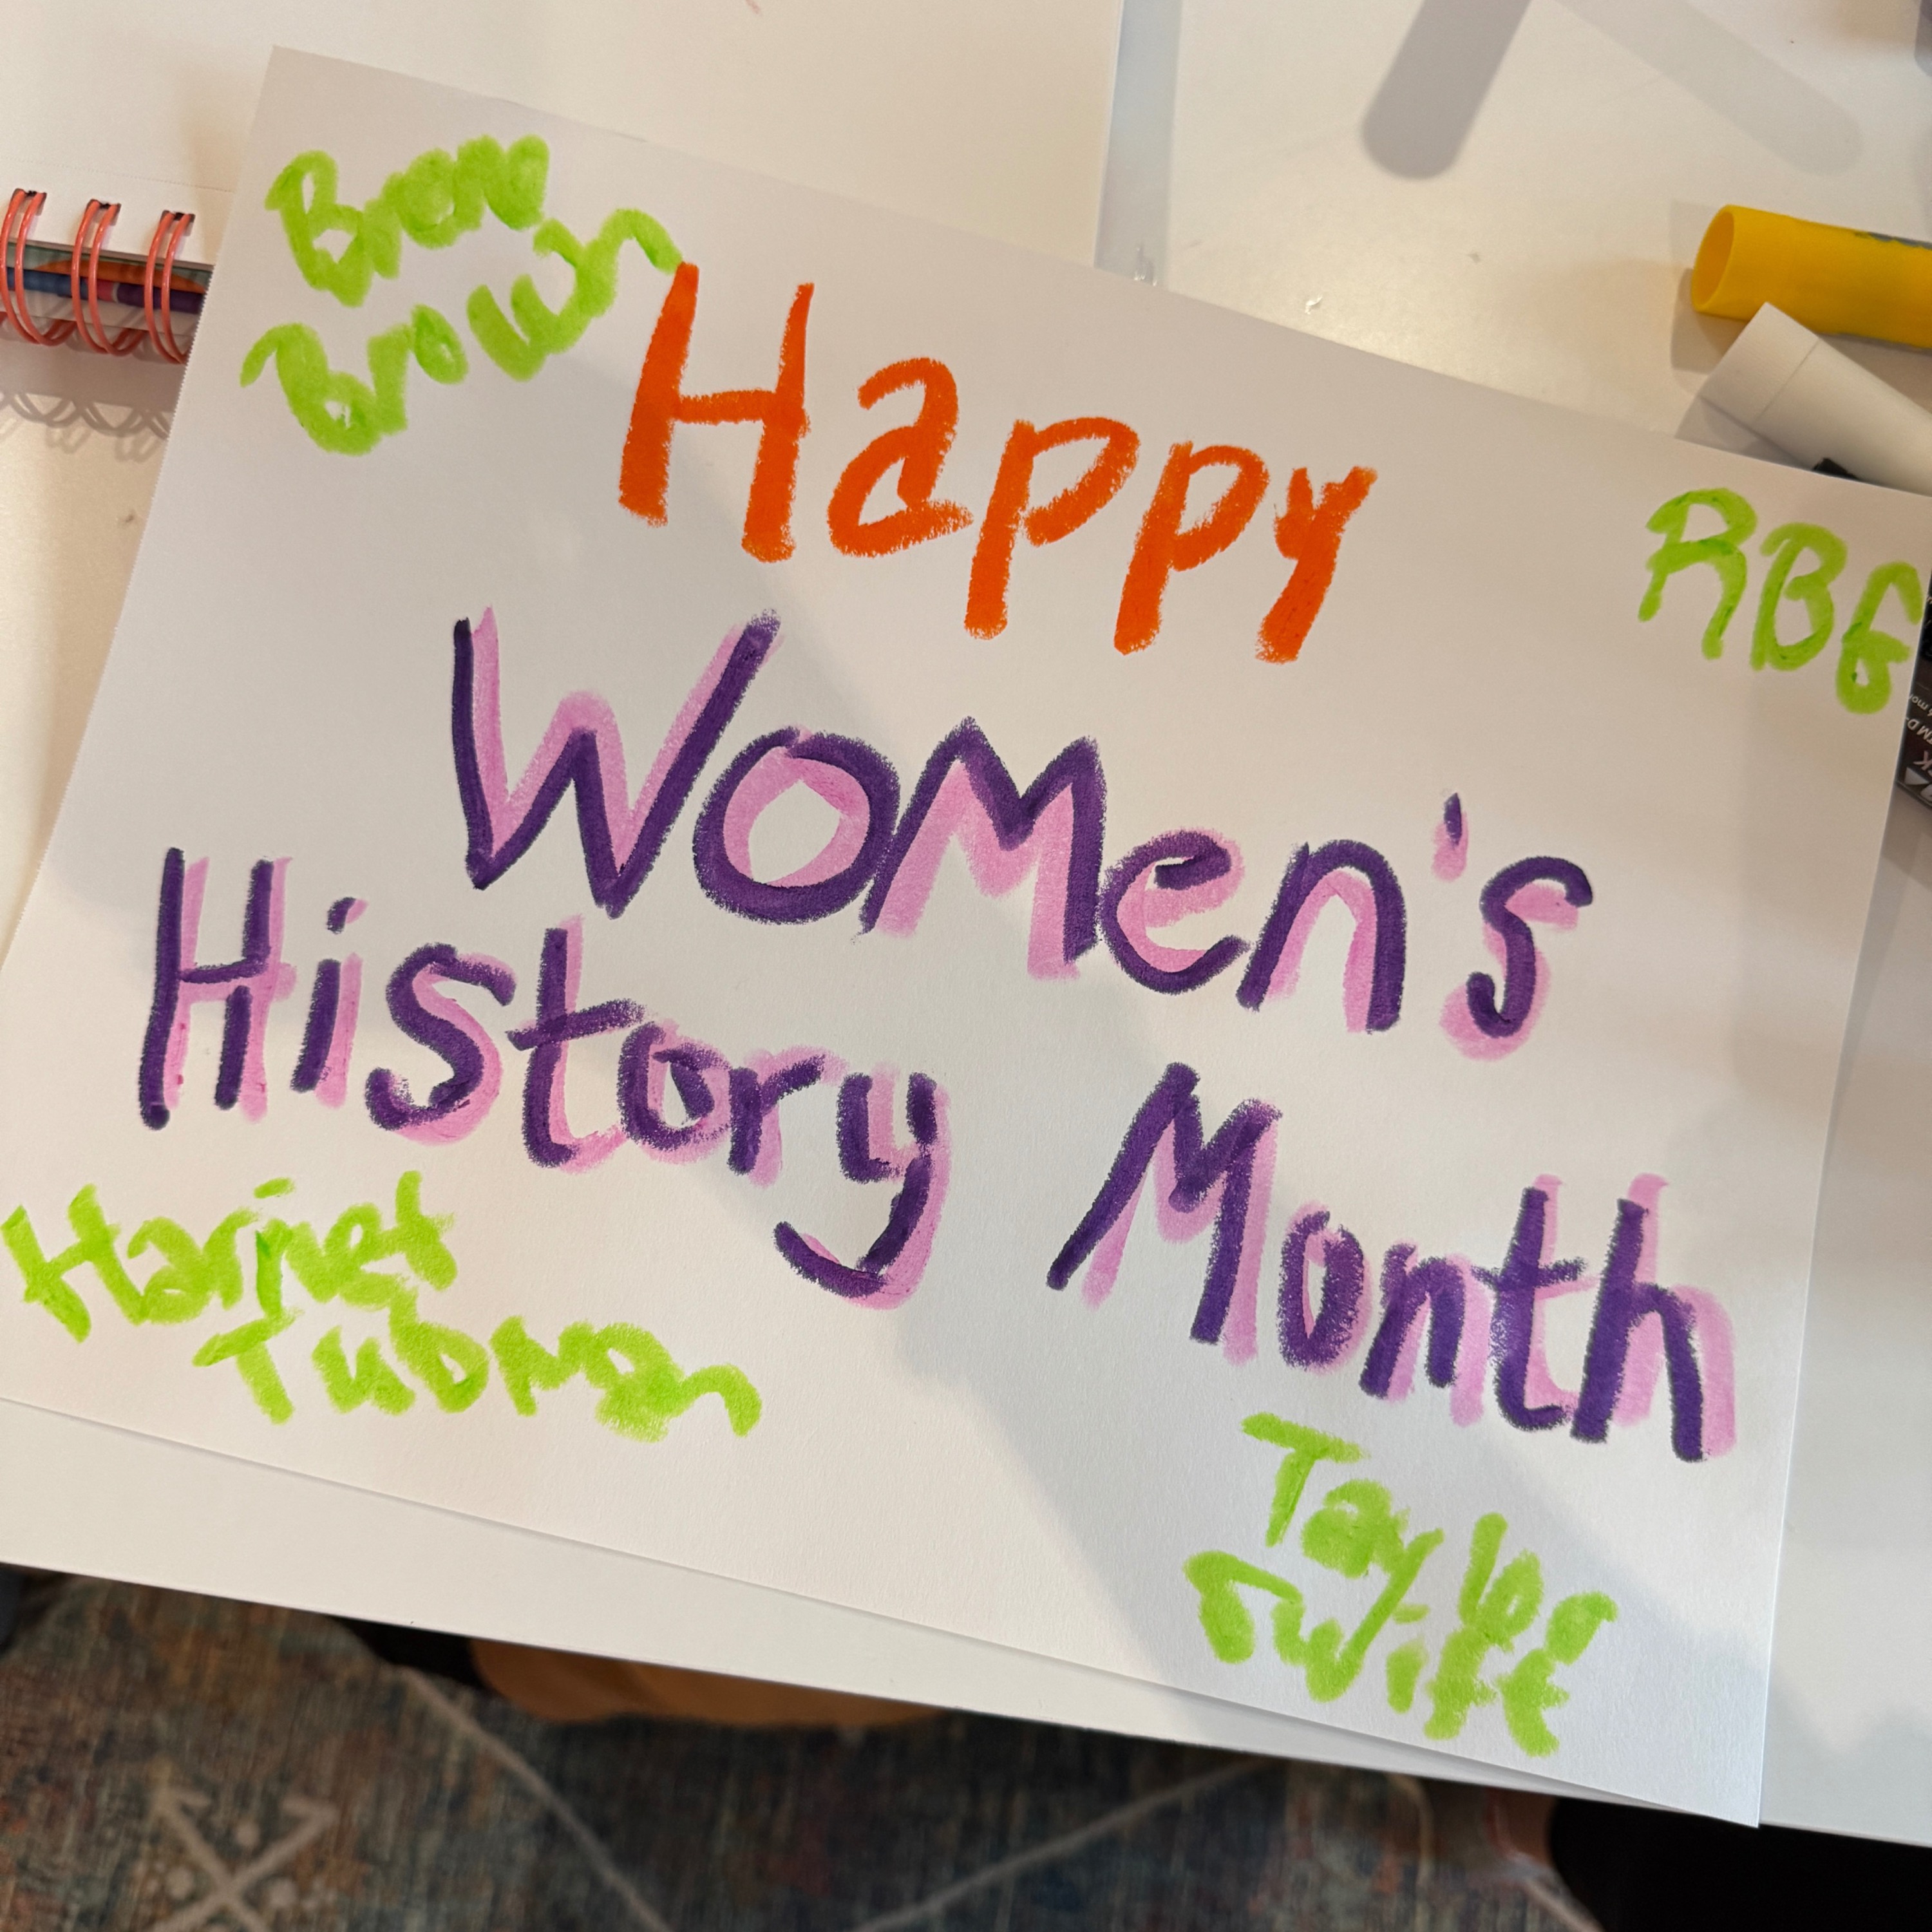 Bren
Brown
Happy
RBG
Women's
History Month
Harriet
Tubman
Taylor
Swift